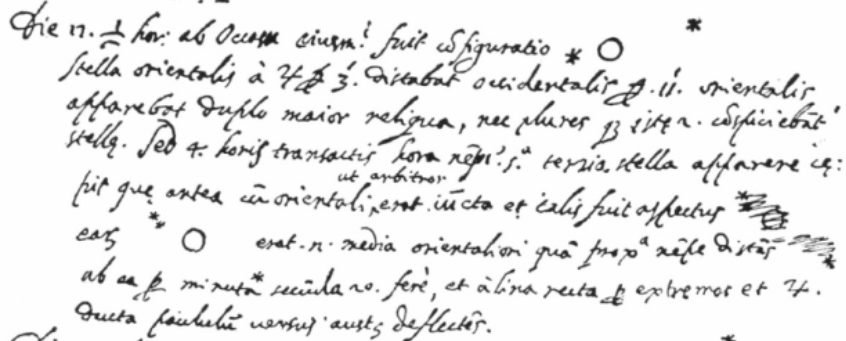 Die 17. ½ hor: ab Occasu fuit cōfiguratio * O *
stella orientalis à ♃ p 3'. distabat occidentalis p. 11'. orientalis
apparebat duplo maior reliqua, nec plures qȝ istę 2. cōspiciebāt'
stellę. Sed 4. horis transactis hora nēpe 5.ª tertia stella apparere cę:
ut arbitror
pit quę antea cū orientali, erat iūcta et talis fuit aspectus
earȝ O erat .n. media orientaliori quā prox.ª nēpe distās
ab ea p minuta secūda 20. ferè, et à linea recta p extremas et ♃.
ducta paululū versus austȝ deflectēs.